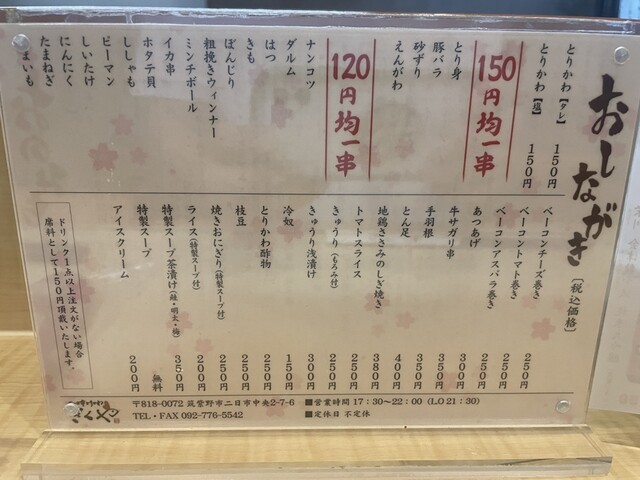 おしながき
〔税込価格〕
とりかわ【タレ】 150円
とりかわ【塩】 150円
150円均一串
とり身
豚バラ
砂ずり
えんがわ
120円均一串
ナンコツ
ダルム
はつ
きも
ぼんじり
粗挽きウィンナー
ミンチボール
イカ串
ホタテ貝
ししゃも
ピーマン
しいたけ
にんにく
たまねぎ
ベーコンチーズ巻き 250円
ベーコントマト巻き 250円
ベーコンアスパラ巻き 250円
あつあげ 250円
牛サガリ串 300円
手羽根 350円
とん足 400円
地鶏ささみのしぎ焼き 380円
トマトスライス 250円
きゅうり(もろみ付) 250円
きゅうり浅漬け 300円
冷奴 150円
枝豆 250円
とりかわ酢物 250円
焼きおにぎり(特製スープ付) 250円
ライス(特製スープ付) 200円
特製スープ茶漬け(鮭・明太・梅) 350円
特製スープ 無料
アイスクリーム 200円
ドリンク1点以上注文がない場合
席料として150円頂戴いたします。
〒818-0072 筑紫野市二日市中央2-7-6
TEL・FAX 092-776-5542
■営業時間 17:30〜22:00 (LO 21:30)
■定休日 不定休